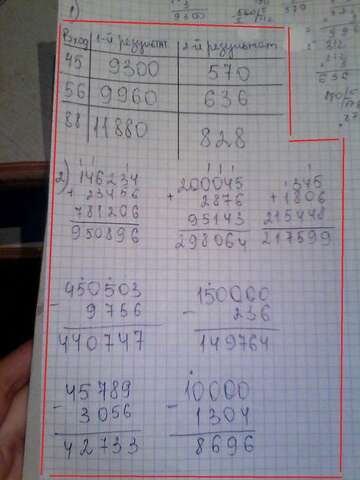 1)
Вход 1-й результат 2-й результат
45 9300 570
56 9960 636
88 11880 828
2) 146234 + 23456 781206 950896
200045 + 2876 95143 298064
345 + 1806 215448 217599
450503 - 9756 440747
150000 - 236 149764
45789 - 3056 42733
10000 - 1304 8696